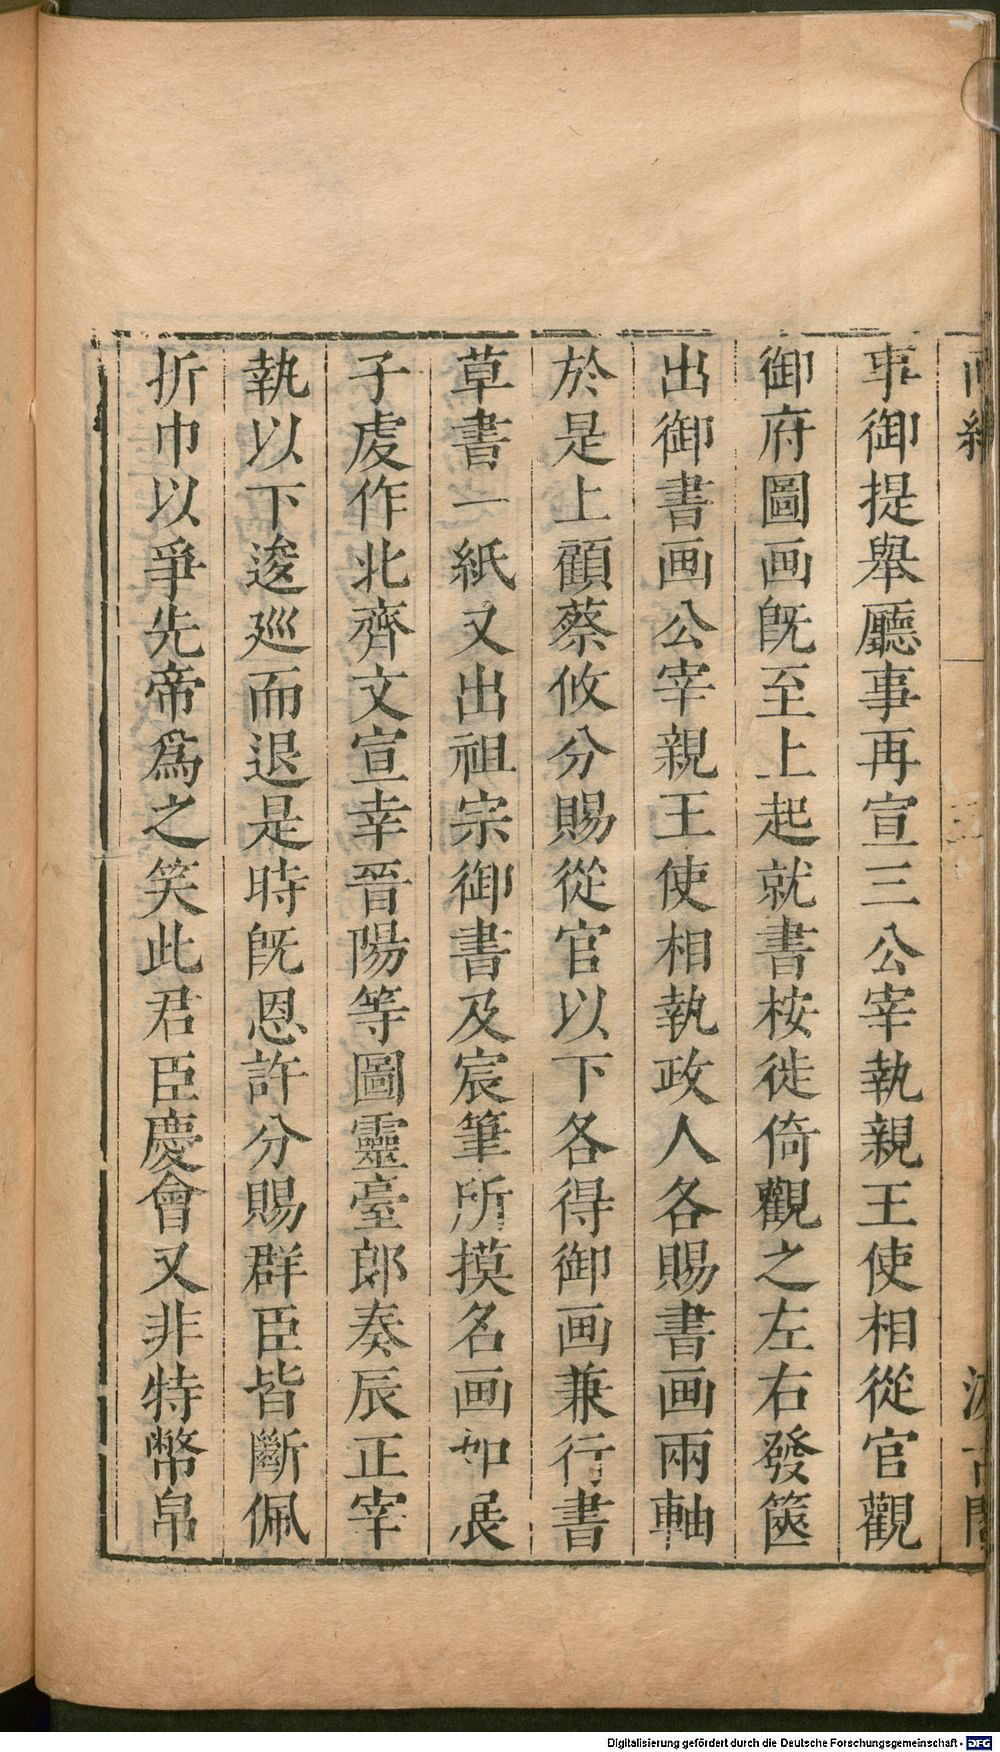 事御提舉廳事再宣三公宰執親王使相從官觀
御府圖画旣至上起就書桉徙倚觀之左右發篋
出御書画公宰親王使相執政人各賜書画兩軸
於是上顧蔡攸分賜從官以下各得御画兼行書
草書一紙又出祖宗御書及宸筆所摸名画如展
子虔作北齊文宣幸晉陽等圖靈臺郎奏辰正宰
執以下逡廵而退是時旣恩許分賜群臣皆斷佩
折巾以爭先帝爲之笑此君臣慶會又非特幣帛
Digitalisierung gefördert durch die Deutsche Forschungsgemeinschaft - DFG